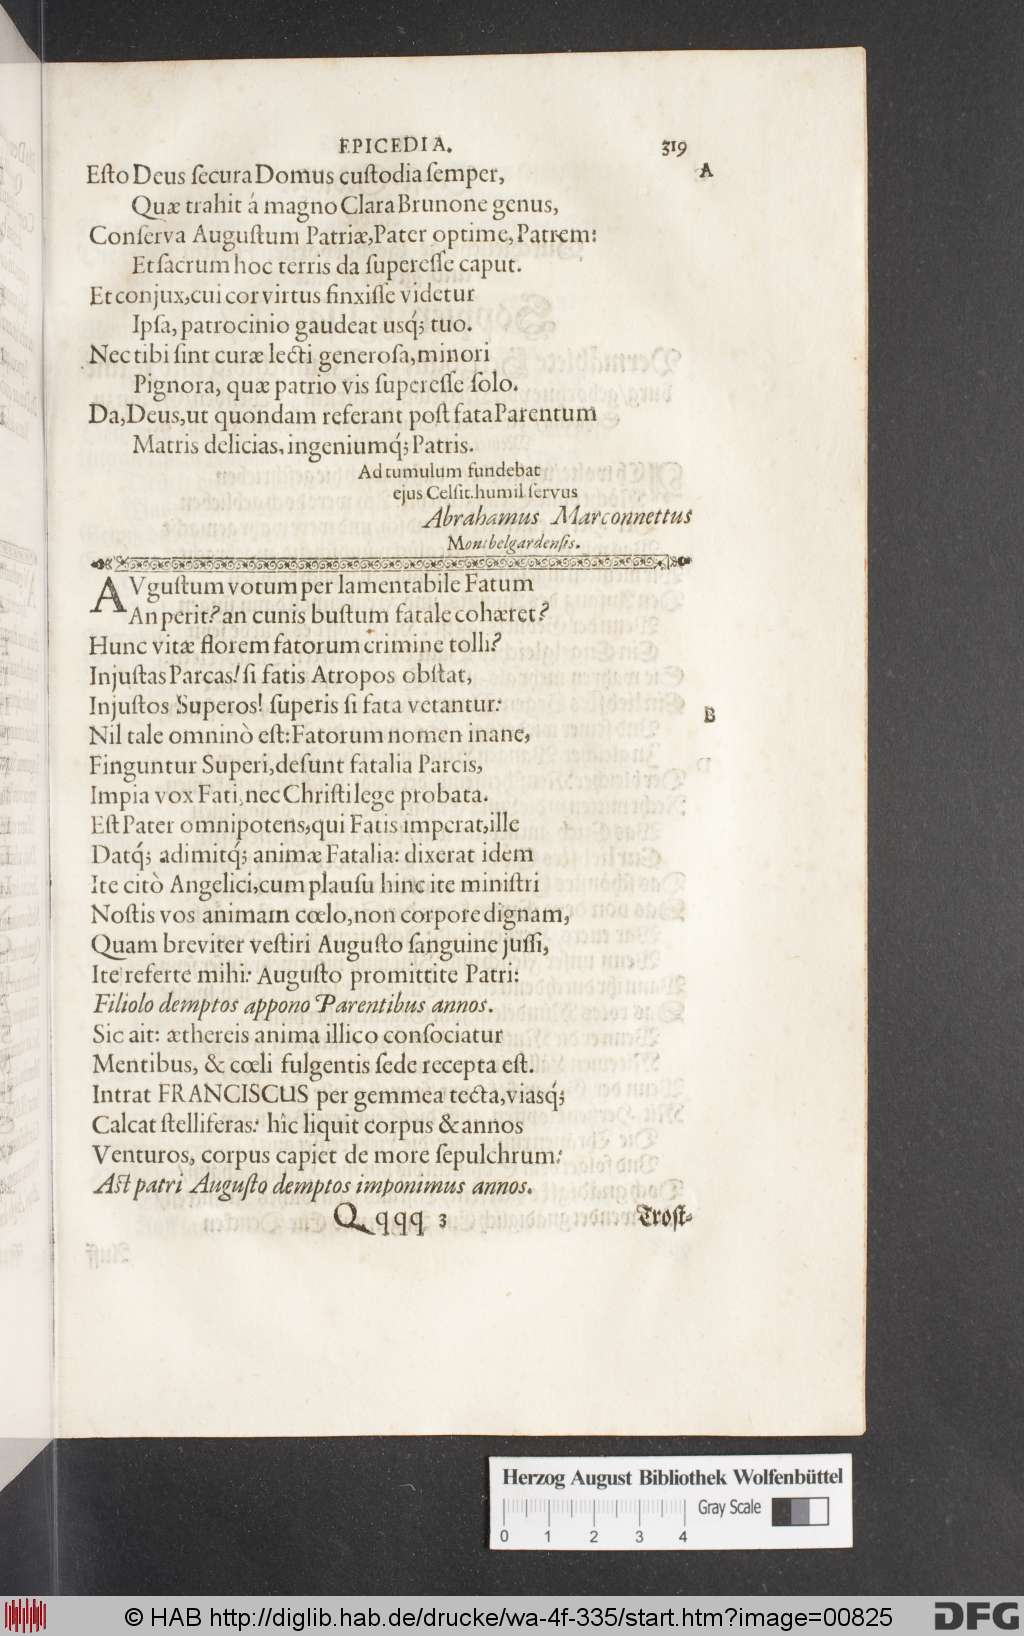 EPICEDIA. 319
Eſto Deus ſecura Domus cuſtodia ſemper, A
Quæ trahit á magno Clara Brunone genus,
Conſerva Auguſtum Patriæ, Pater optime, Patrem:
Et ſacrum hoc terris da ſupereſſe caput.
Et conjux, cui cor virtus finxiſſe videtur
Ipſa, patrocinio gaudeat usq́; tuo.
Nec tibi ſint curæ lecti generoſa, minori
Pignora, quæ patrio vis ſupereſſe ſolo.
Da, Deus, ut quondam referant poſt fata Parentum
Matris delicias, ingeniumq́; Patris.
Ad tumulum fundebat
ejus Celſit. humil ſervus
Abrahamus Marconnettus
Montbelgardenſis.
AVguſtum votum per lamentabile Fatum
An perit? an cunis buſtum fatale cohæret?
Hunc vitæ florem fatorum crimine tolli?
Injuſtas Parcas! ſi fatis Atropos obſtat,
Injuſtos Superos! ſuperis ſi fata vetantur: B
Nil tale omninò eſt: Fatorum nomen inane,
Finguntur Superi, deſunt fatalia Parcis,
Impia vox Fati, nec Chriſti lege probata.
Eſt Pater omnipotens, qui Fatis imperat, ille
Datq́; adimitq́; animæ Fatalia: dixerat idem
Ite citò Angelici, cum plauſu hinc ite miniſtri
Noſtis vos animam cœlo, non corpore dignam,
Quam breviter veſtiri Auguſto ſanguine juſſi,
Ite referte mihi: Auguſto promittite Patri:
Filiolo demptos appono Parentibus annos.
Sic ait: æthereis anima illico conſociatur
Mentibus, & cœli fulgentis ſede recepta eſt.
Intrat FRANCISCUS per gemmea tecta, viasq́;
Calcat ſtelliferas: hîc liquit corpus & annos
Venturos, corpus capiet de more ſepulchrum:
Aſt patri Auguſto demptos imponimus annos.
Qqqq 3 Troſt-
Herzog August Bibliothek Wolfenbüttel
Gray Scale
0 1 2 3 4
© HAB http://diglib.hab.de/drucke/wa-4f-335/start.htm?image=00825 DFG